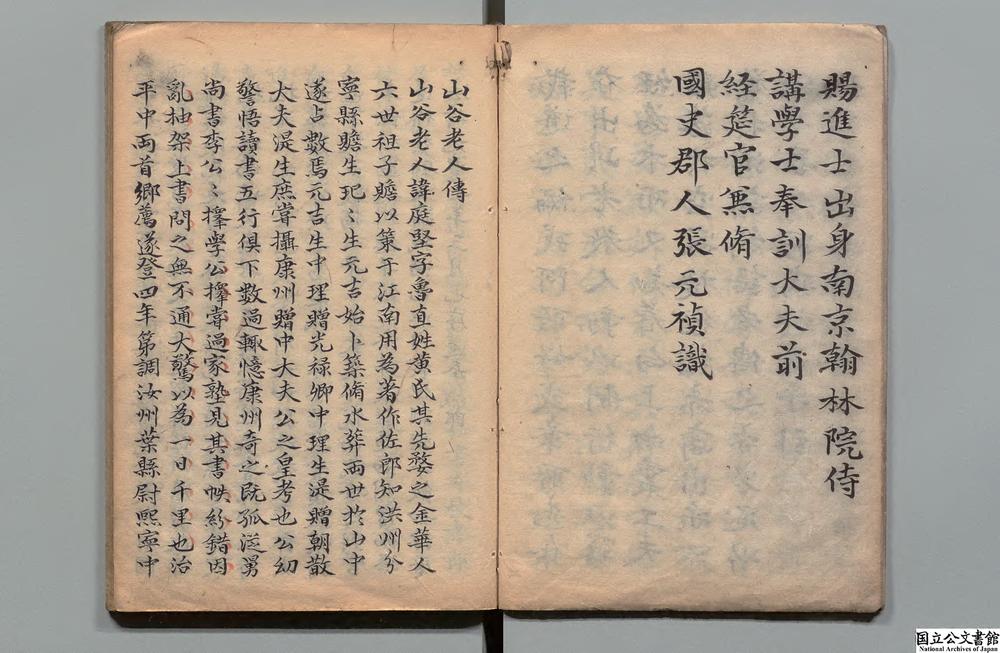 賜進士出身南京翰林院侍
講學士奉訓大夫前
経筵官兼脩
國史郡人張元禎識
山谷老人傳
山谷老人諱庭堅字魯直姓黄氏其先婺之金華人
六世祖子贍以策于江南用為著作佐郎知洪州分
寧縣贍生玘〻生元吉始卜築脩水葬両世於山中
遂占數焉元吉生中理贈光禄卿中理生湜贈朝散
大夫湜生庶嘗攝康州贈中大夫公之皇考也公幼
警悟讀書五行俱下數過輒憶康州奇之既孤従舅
尚書李公〻擇學公擇嘗過家塾見其書帙紛錯因
亂抽架上書問之無不通大驚以為一日千里也治
平中両首郷薦遂登四年第調汝州葉縣尉熈寧中
国立公文書館
National Archives of Japan